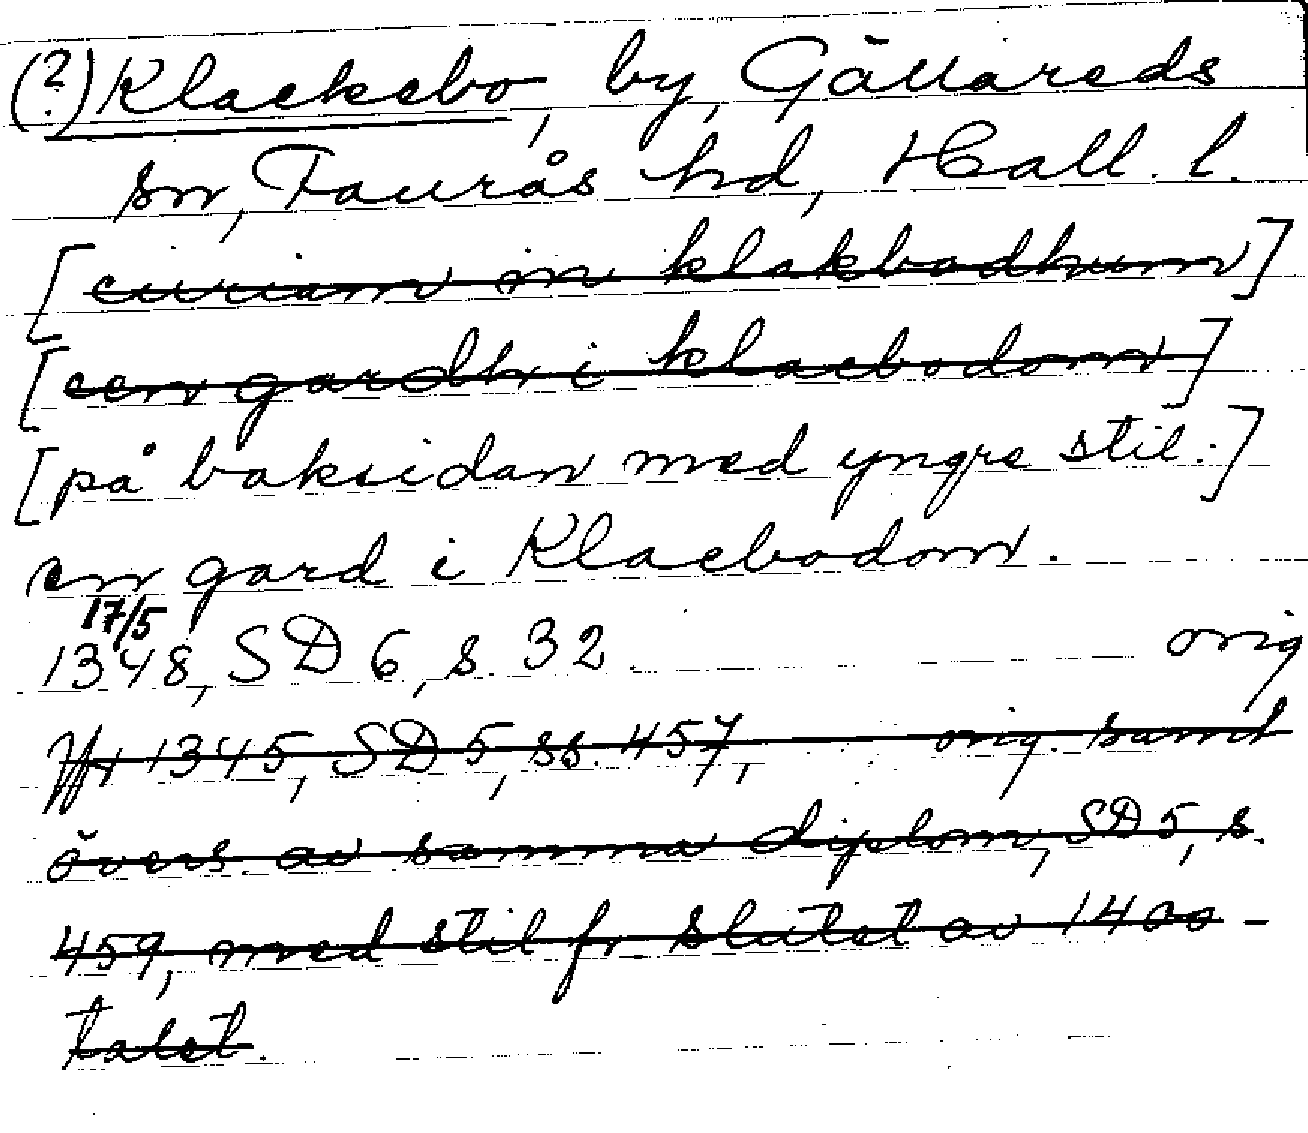 (?) Klackebo, by, Gällareds
sn, Faurås hd, Hall. l.
[curiam in klakbodhum]
[een gardh i klacbodom]
[på baksidan med yngre stil:]
en gard i Klacbodom.
17/5
1348, SD 6, s. 32 orig
Jfr 1345, SD 5, ss. 457, orig. samt
övers. av samma diplom, SD 5, s.
459, med stil fr. slutet av 1400-
talet.